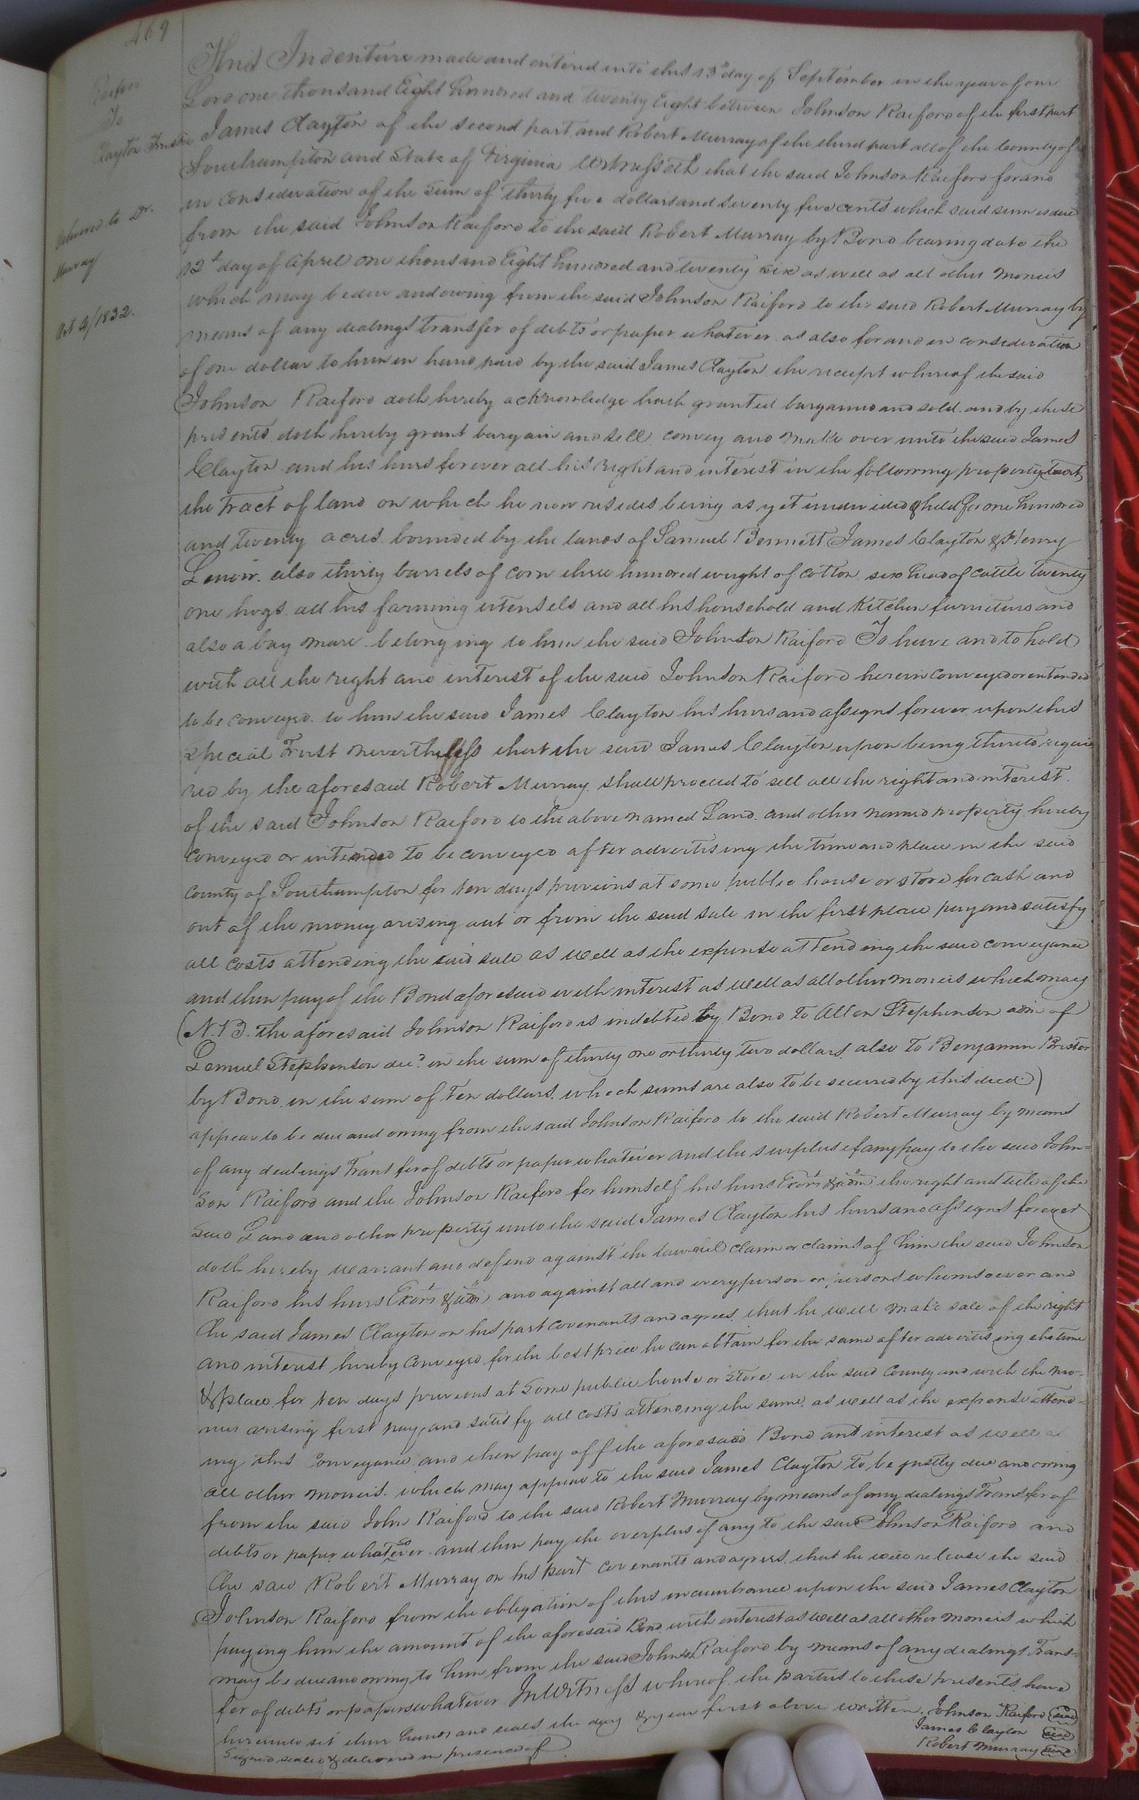 469
Raiford
To
Clayton Trustee
Delivered to Dr.
Murray
Oct 4/1832.
This Indenture made and entered into this 13th day of September in the year of our
Lord one thousand Eight hundred and twenty Eight between Johnson Raiford of the first part
James Clayton of the second part and Robert Murray of the third part all of the County of
Southampton and State of Virginia Witnesseth that the said Johnson Raiford for and
in consideration of the sum of thirty five dollars and seventy five cents which said sum is due
from the said Johnson Raiford to the said Robert Murray by Bond bearing date the
12th day of April one thousand Eight hundred and twenty six as well as all other monies
which may be due and owing from the said Johnson Raiford to the said Robert Murray by
means of any dealings transfer of debts or paper whatever as also for and in consideration
of one dollar to him in hand paid by the said James Clayton the receipt whereof the said
Johnson Raiford doth hereby acknowledge hath granted bargained and sold and by these
presents doth hereby grant bargain and sell convey and make over unto the said James
Clayton and his heirs forever all his right and interest in the following property (towit)
the tract of land on which he now resides being as yet undivided & held for one hundred
and twenty acres bounded by the lands of Samuel Bennett James Clayton & Henry
Lenow. also thirty barrels of corn three hundred weight of cotton six head of cattle twenty
one hogs all his farming utensels and all his household and kitchen furniture and
also a bay mare belonging to him the said Johnson Raiford To have and to hold
with all the right and interest of the said Johnson Raiford herein conveyed or intended
to be conveyed to him the said James Clayton his heirs and assigns forever upon this
special Trust nevertheless that the said James Clayton upon being thereto requi
red by the aforesaid Robert Murray shall proceed to sell all the right and interest
of the said Johnson Raiford to the above named Land and other named property hereby
conveyed or intended to be conveyed after advertising the time and place in the said
county of Southampton for ten days previous at some public house or store for cash and
out of the money arising out or from the said sale in the first place pay and satisfy
all costs attending the said sale as well as the expense attending the said conveyance
and then pay of the Bond aforesaid with interest as well as all other monies which may
(N.B. the aforesaid Johnson Raiford is indebted by Bond to Allen Stephenson adm of
Lemuel Stephenson decd in the sum of thirty one or thirty two dollars also to Benjamin Bristor
by Bond in the sum of ten dollars which sums are also to be secured by this deed)
appear to be due and owing from the said Johnson Raiford to the said Robert Murray by means
of any dealings Transfer of debts or paper whatever and the surplus if any pay to the said John=
son Raiford and the Johnson Raiford for himself his heirs Exors & adm the right and title of the
said Land and other property unto the said James Clayton his heirs and assigns forever
doth hereby warrant and defend against the lawful claim or claims of him the said Johnson
Raiford his heirs Exors & adm and against all and every person or persons whomsoever and
the said James Clayton on his part covenants and agrees that he will make sale of the right
and interest hereby conveyed for the best price he can obtain for the same after advertising the time
& place for ten days previous at some public house or store in the said County and with the mo-
nies arising first pay and satisfy all costs attending the same as well as the expense attend=
ing this conveyance and then pay off the aforesaid Bond and interest as well as
all other monies which may appear to the said James Clayton to be justly due and owing
from the said John Raiford to the said Robert Murray by means of any dealings Transfer of
debts or paper whatever and then pay the overplus if any to the said Johnson Raiford and
the said Robert Murray on his part covenants and agrees that he will release the said
Johnson Raiford from the obligation of this incumbrance upon the said James Clayton
paying him the amount of the aforesaid Bond with interest as well as all other monies which
may be due and owing to him from the said Johnson Raiford by means of any dealings Trans=
fer of debts or papers whatever In Witness whereof the parties to these presents have
hereunto set their hands and seals the day & year first above written. Johnson Raiford seal
Signed sealed & delivered in presence of
James Clayton seal
Robert Murray seal